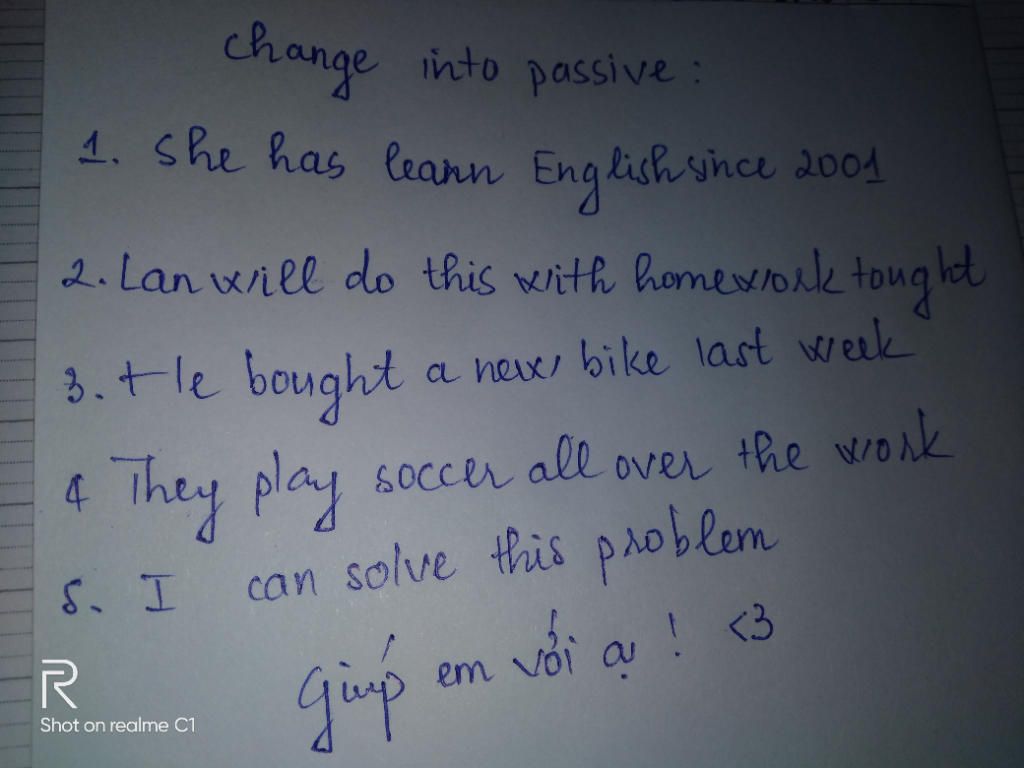 Change into passive:
1. She has learn English since 2001
2. Lan will do this with homework tought
3. He bought a new bike last week
4 They play soccer all over the work
5. I can solve this problem
Giúp em với ạ! <3
R
Shot on realme C1